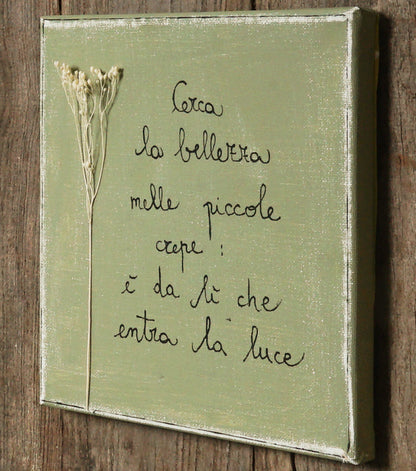 Cerca
la bellezza
nelle piccole
crepe :
è da lì che
entra la luce